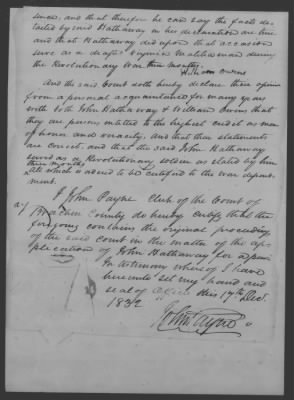 sence, and that therefore he can say the facts de-
tailed by said Hathaway in her declaration are true
and that Hathaway did upon that occasion
serve as a drafted Virginia Militiaman during
the Revolutionary War three months.
William Owens
And the said Court doth hereby declare their opinion
from a personal acquaintance for many years
with both John Hathaway & William Owens that
they are persons entitled to the highest credit as men
of honor and veracity, and that their statements
are correct, and that the said John Hathaway
served as a Revolutionary soldier as stated by him
three months
All which is ordered to be certified to the war depart-
ment.
I John Payne Clerk of the Court of
Bracken County do hereby certify that the
foregoing contains the original proceedings
of the said court in the matter of the ap-
plication of John Hathaway for a pension
In testimony whereof I have
hereunto set my hand and
seal of office this 17th Dec.
1832
John Payne